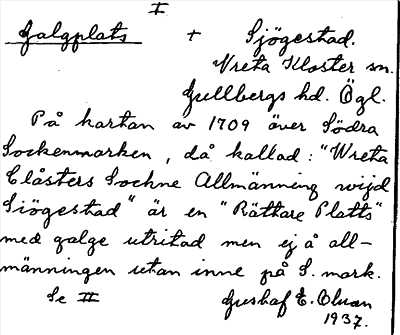 I
Galgplats + Sjögestad.
Vreta Kloster sn.
Gullbergs hd. Ögl.
På kartan av 1709 över Södra
Sockenmarken, då kallad: "Wreta
Clåsters Sochne Allmänning wijd
Siögestad" är en "Rättare Platts"
med galge utritad men ej å all-
männingen utan inne på S. mark.
Se II Gustaf E. Olsson
1937.